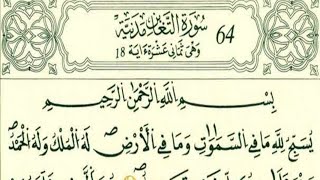 سورة التغابن مدنية 64
وهي ثماني عشرة ءاية 18
بِسْمِ اللَّهِ الرَّحْمَٰنِ الرَّحِيمِ
يُسَبِّحُ لِلَّهِ مَا فِي السَّمَٰوَٰتِ وَمَا فِي الْأَرْضِ ۖ لَهُ الْمُلْكُ وَلَهُ الْحَمْدُ ۖ